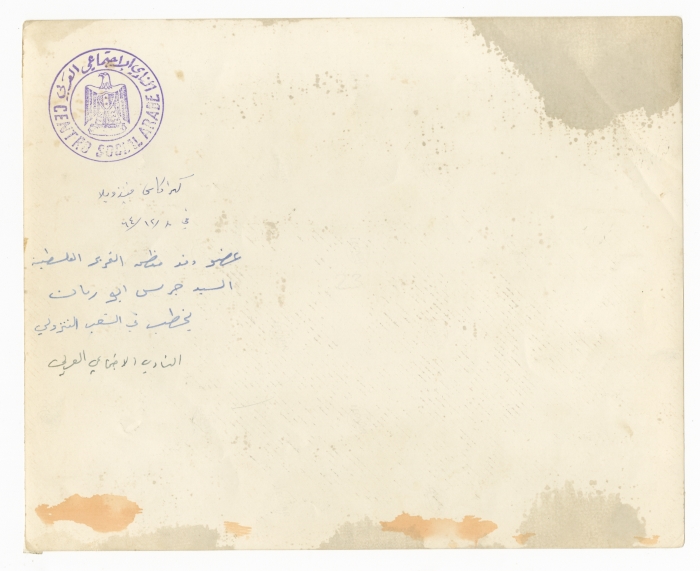 النادي الاجتماعي العربي
CENTRO SOCIAL ARABE
كراكاس فنزويلا
في ٨/١٢/٦٤
عضو وفد منظمة التحرير الفلسطينية
السيد جريس ابو رمان
يخطب في الشعب الفنزولي
النادي الاجتماعي العربي